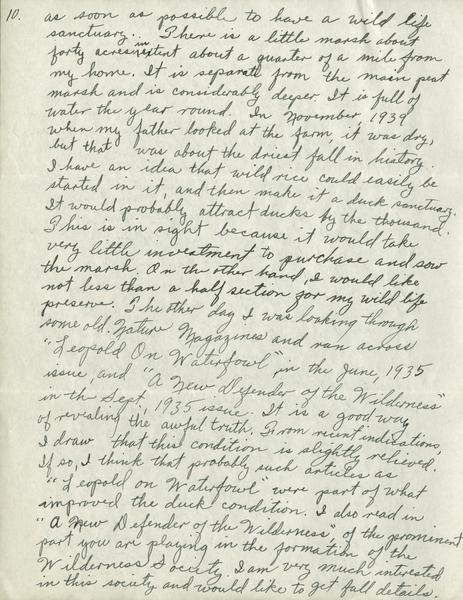 10.
as soon as possible to have a wild life
sanctuary. There is a little marsh about
forty acres in extent about a quarter of a mile from
my home. It is separate from the main peat
marsh and is considerably deeper. It is full of
water the year round. In November, 1939
when my father looked at the farm, it was dry,
but that was about the driest fall in history.
I have an idea that wild rice could easily be
started in it, and then make it a duck sanctuary.
It would probably attract ducks by the thousand.
This is in sight because it would take
very little investment to purchase and sow
the marsh. On the other hand, I would like
not less than a half section for my wild life
preserve. The other day I was looking through
some old Nature Magazines and ran across
"Leopold On Waterfowl", in the June, 1935
issue, and "A New Defender of the Wilderness"
in the Sept, 1935 issue. It is a good way
of revealing the awful truth. From recent indications,
I draw that this condition is slightly relieved.
If so, I think that probably such articles as
"Leopold on Waterfowl" were part of what
improved the duck condition. I also read in
"A New Defender of the Wilderness", of the prominent
part you are playing in the formation of the
Wilderness Society. I am very much interested
in this society and would like to get full details.